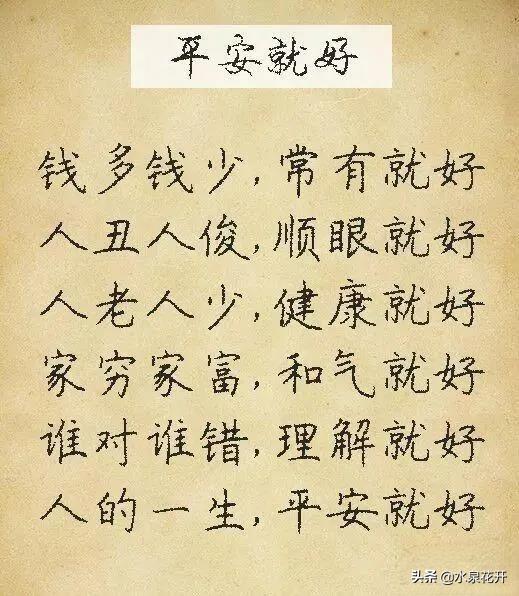 平安就好
钱多钱少,常有就好
人丑人俊,顺眼就好
人老人少,健康就好
家穷家富,和气就好
谁对谁错,理解就好
人的一生,平安就好
头条@水泉花开